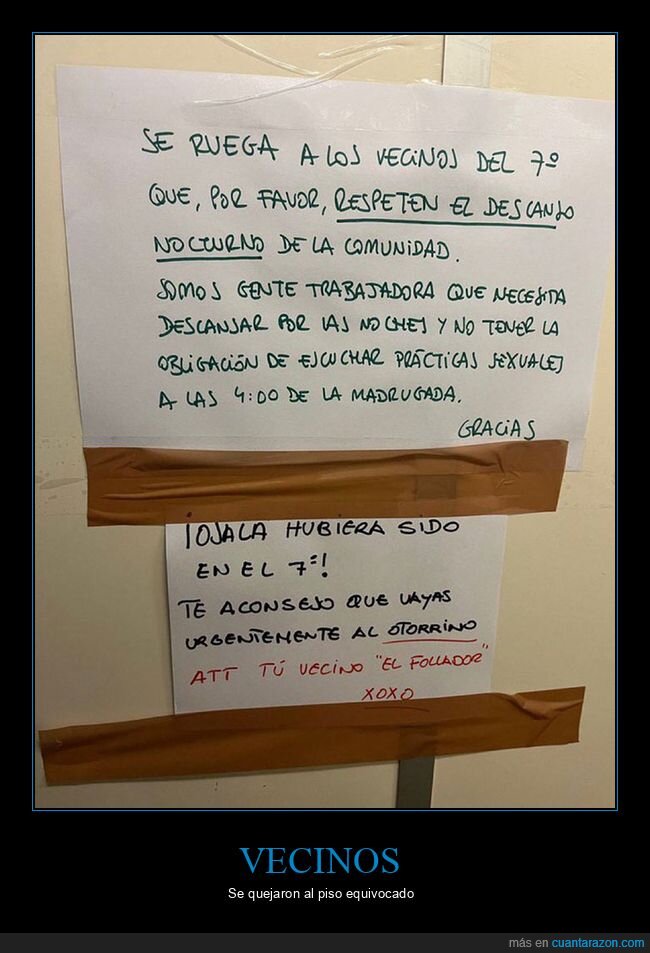 SE RUEGA A LOS VECINOS DEL 7º
QUE, POR FAVOR, RESPETEN EL DESCANSO
NOCTURNO DE LA COMUNIDAD.
SOMOS GENTE TRABAJADORA QUE NECESITA
DESCANSAR POR LAS NOCHES Y NO TENER LA
OBLIGACIÓN DE ESCUCHAR PRÁCTICAS SEXUALES
A LAS 4:00 DE LA MADRUGADA.
GRACIAS
¡OJALA HUBIERA SIDO
EN EL 7º!
TE ACONSEJO QUE VAYAS
URGENTEMENTE AL OTORRINO
ATT TÚ VECINO "EL FOLLADOR"
XOXO
VECINOS
Se quejaron al piso equivocado
más en cuantarazon.com